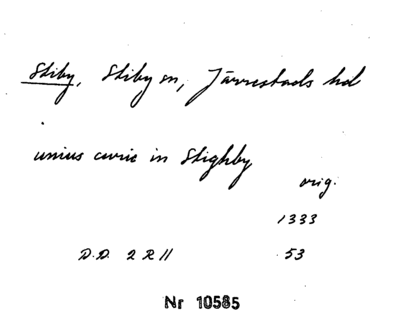 Stiby, Stiby sn, Järrestads hd
unius curie in Stighby
orig.
1333
D.D. 2 R 11 53
Nr 10585